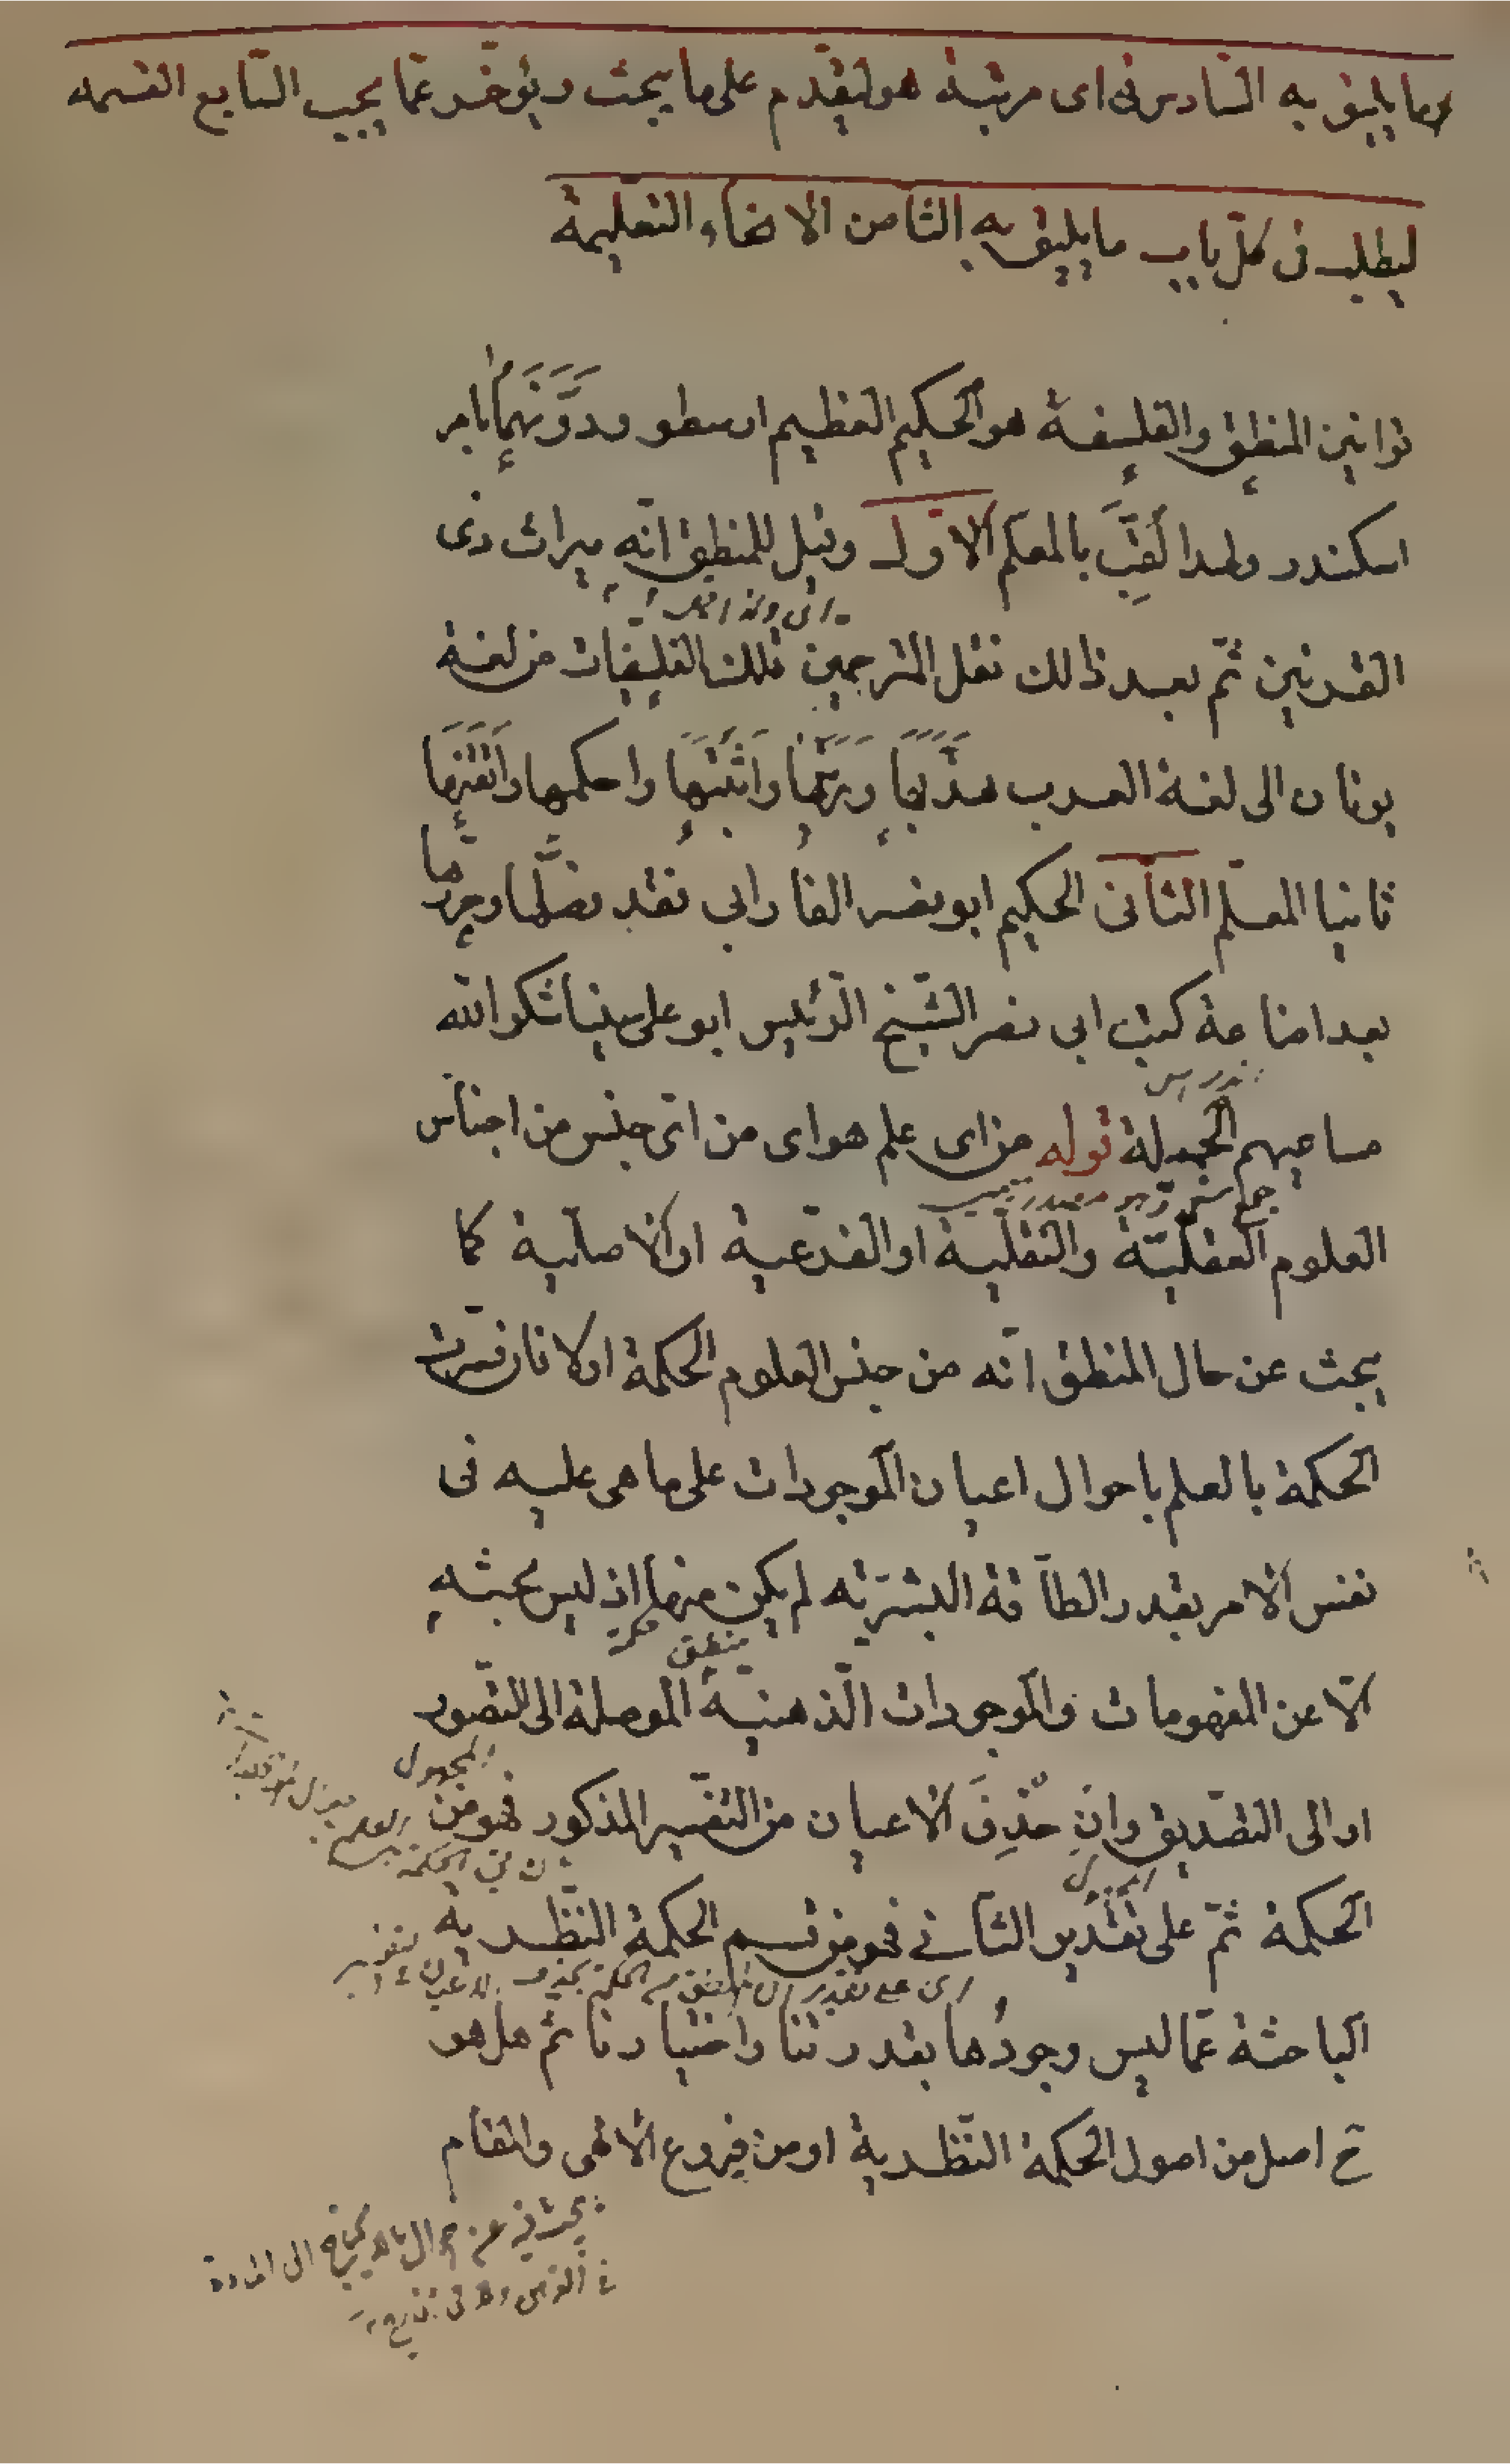 ما يليق به السادس فى اى مرتبة هو ليقدم على ما يجث ويؤخر عما يجب السابع القسمه
ليطلب فى كل باب ما يليق به الثامن الانحاء التعليمة
قوانين المنطق والفلسفة هو الحكيم العظيم ارسطو ودَوَّنَهما بامر
اسكندر ولهذا لُقِّبَ بالمعلم الاول وقيل للمنطق انه ميراث ذى
القرنين ثم بعد ذالك نقل المترجمين تلك الفلسفيات من لغة
يونان الى لغة العرب هذَّبَها ورتَّبَها واثبتها واحكمها واتقنها
ثانيا المعلم الثانى الحكيم ابو نصر الفارابى وقد فصّلها وحررها
بعد اضاعة كتب ابى نصر الشيخ الرئيس ابو على سينا شكر الله
مساعيهم الجميلة قوله من اى علم هو اى من اىّ جنس من اجناس
العلوم العقليّة والنقلية او الفرعية او الاصلية كما
يبحث عن حال المنطق انه من جنس العلوم الحكمة ام لا فان فسرت
الحكمة بالعلم باحوال اعيان الموجودات على ما هى عليه فى
نفس الامر بقدر الطاقة البشرية لم يكن منها اذ ليس بحثه
منطق
الّا عن المفهومات والموجودات الذهنية الموصلة الى التصور
المجهول
او الى التصديق وان حُذِفَ الاعيان من التفسير المذكور فهو من
الحكمة ثم على تقدير الثانى فهو من قسم الحكمة النظرية
اى على تقدير ان المنطق من الحكمة بحذف الاعيان
الباحثة عما ليس وجودُها بقدرتنا واختيارنا ثم هل هو
ح اصل من اصول الحكمة النظرية او من فروع الالهى والمقام
يبحث فيه عن احوال ما لا يحتاج الى المادة